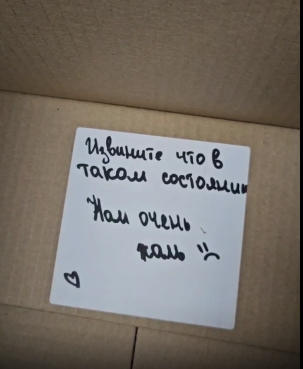 Извините что в
таком состоянии
Нам очень
жаль